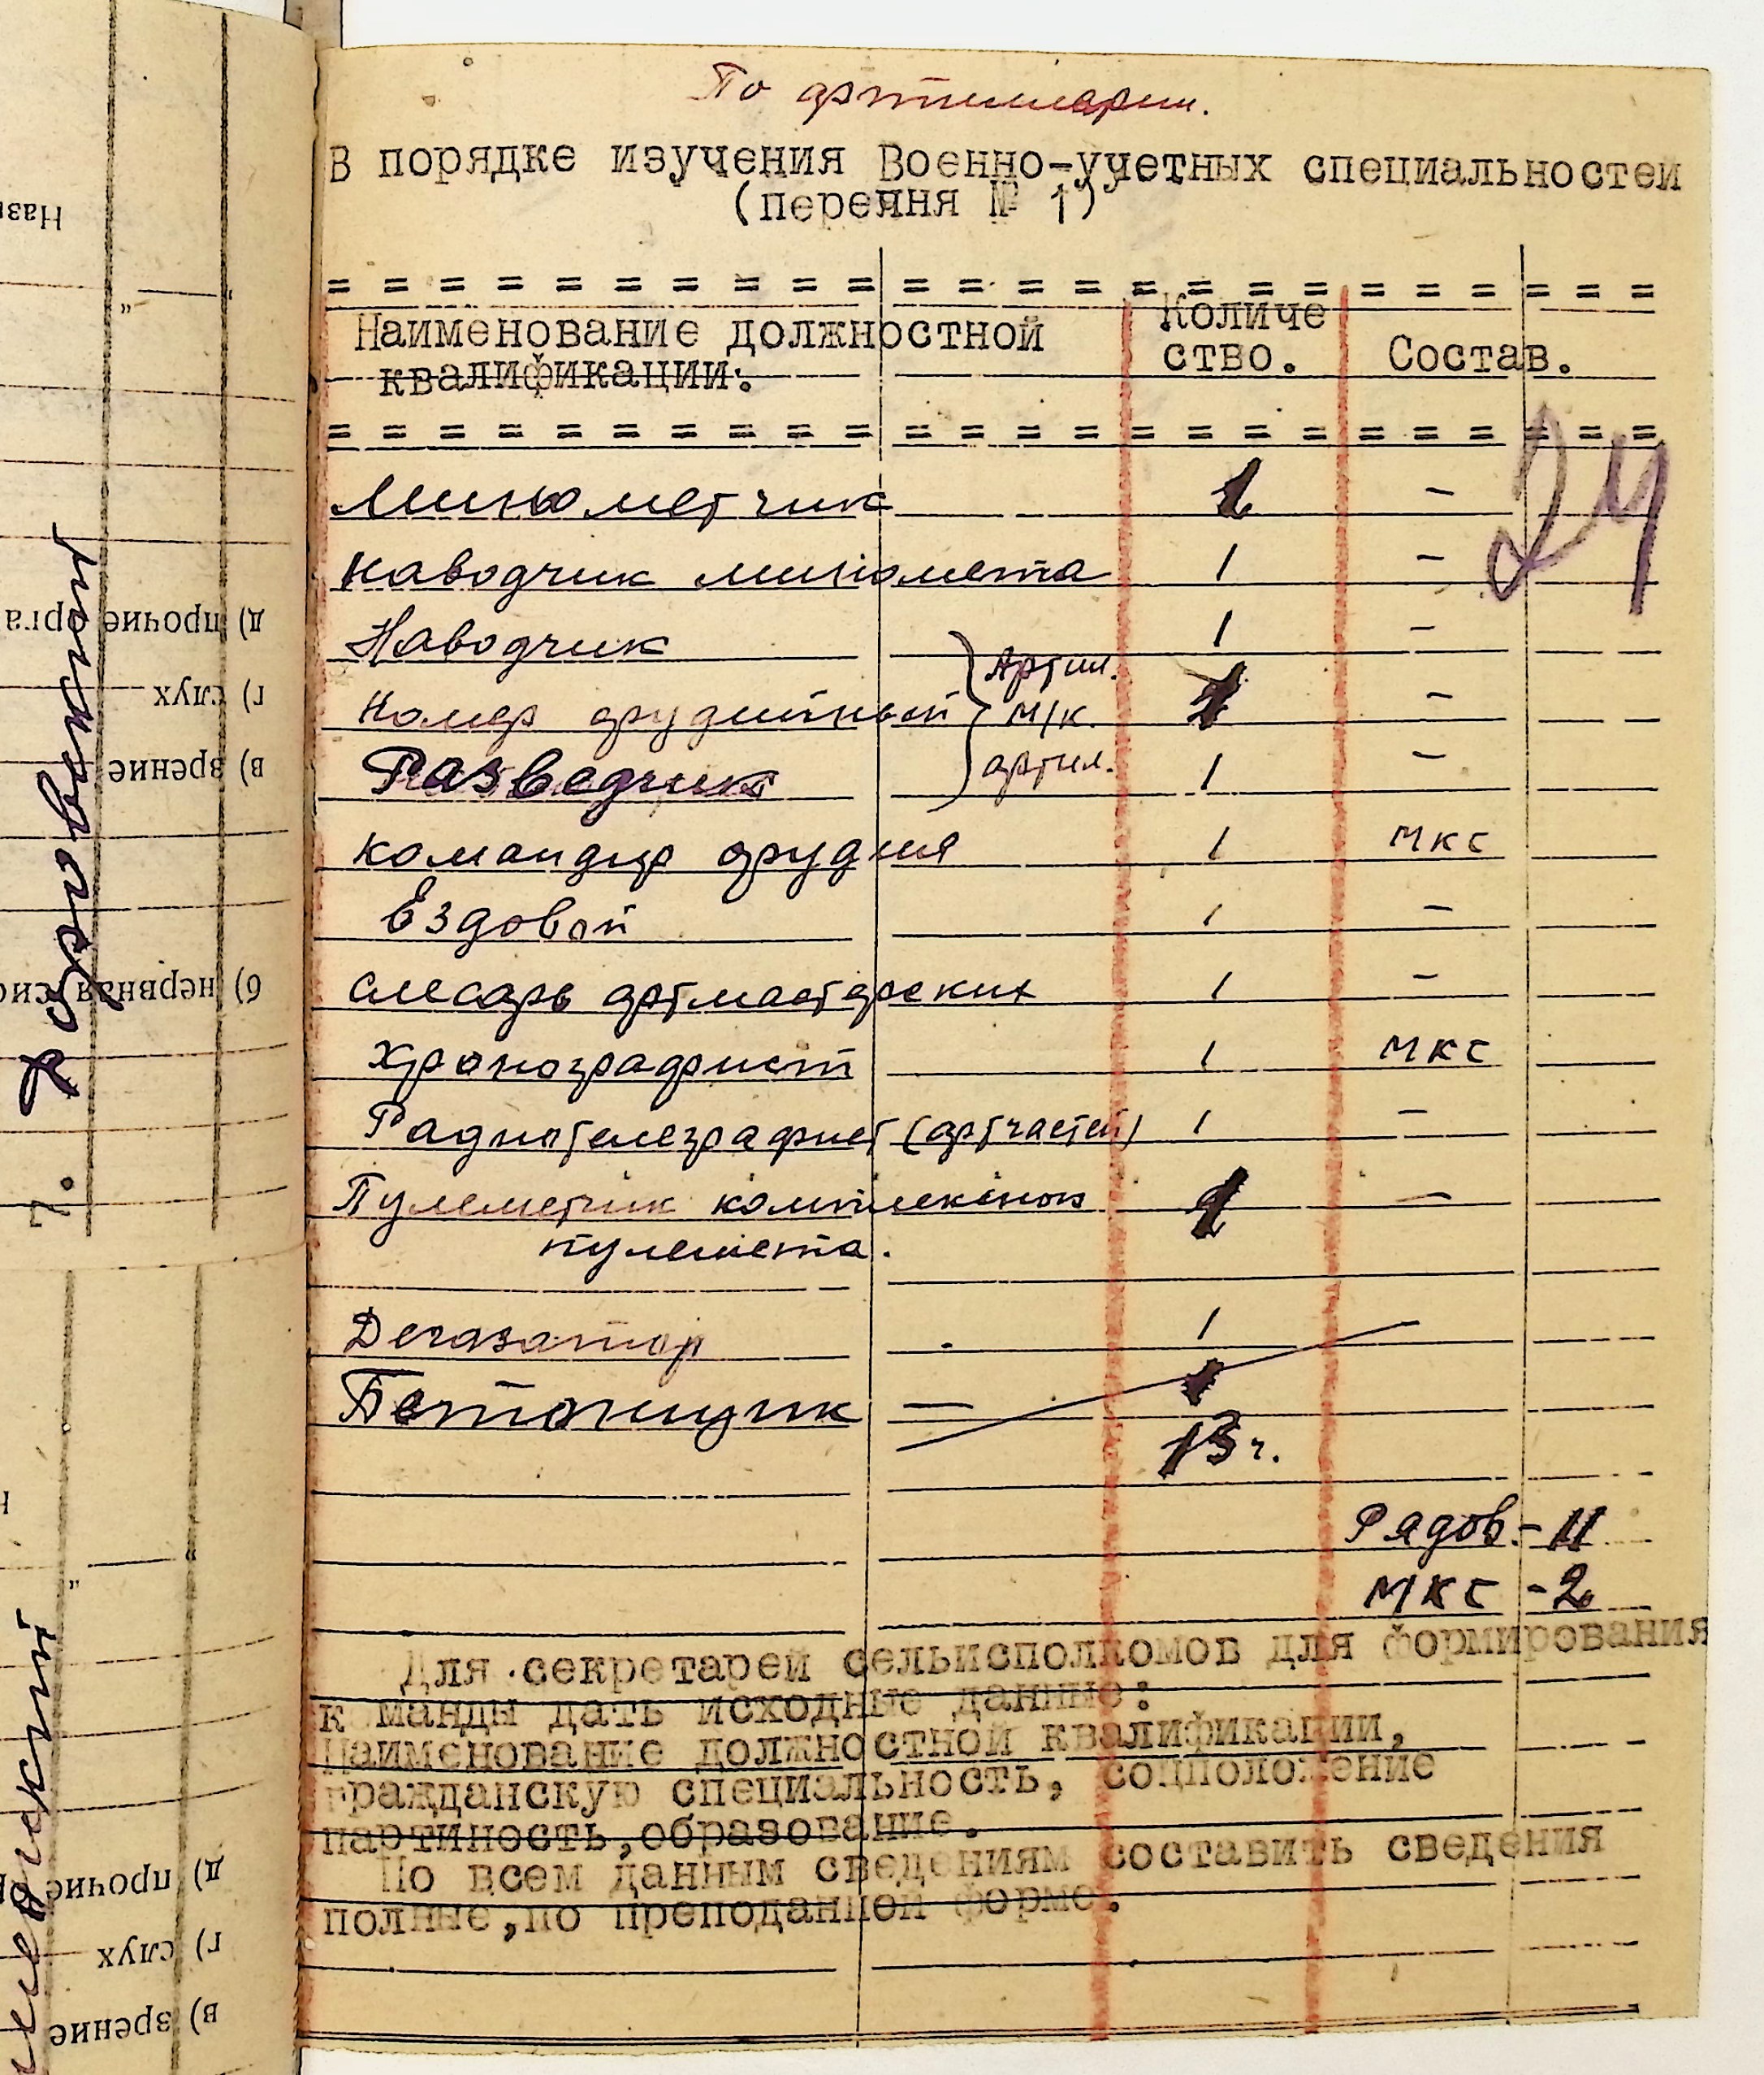 По артиллерии.
В порядке изучения Военно-учетных специальностей
(перечня № 1)
Наименование должностной квалификации.
Количе ство.
Состав.
24
Минометчик 1 -
Наводчик миномета 1 -
Наводчик 1 -
Артил.
Номер орудийный 1 -
м/к.
Разведчик 1 -
артил.
Командир орудия 1 МКС
Ездовой 1 -
Слесарь артмастерских 1 -
Хронографист 1 МКС
Радиотелеграфист (артчастей) 1 -
Пулеметчик комплексного 1 -
пулемета.
Дегазатор 1
Бетонщик — 1
13 ч.
Рядов. - 11
МКС - 2
Для секретарей сельисполкомов для формирования
к манды дать исходные данные:
Наименование должностной квалификации,
гражданскую специальность, соцположение
партиность, образование.
По всем данным сведениям составить сведения
полные, по преподанной форме.
Назв
„
д) прочие орга
г) слух
в) зрение
б) нервная сис
7.
„
д) прочие о
г) слух
в) зрение